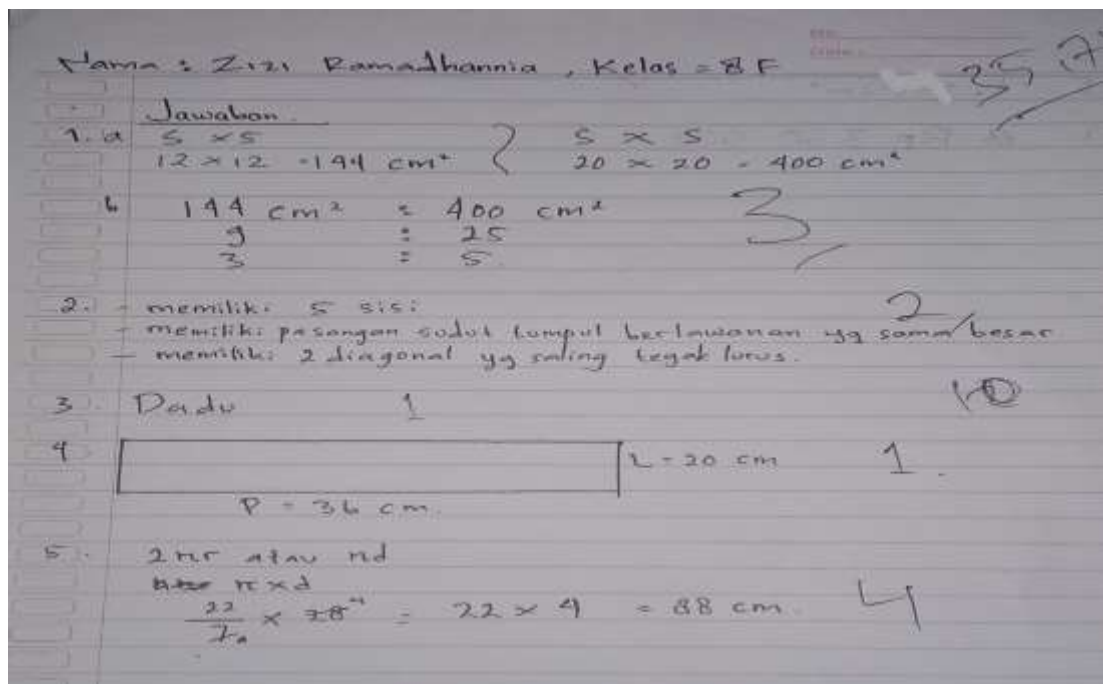 Nama : Zizi Ramadhannia , Kelas = 8 F
35
Jawaban
1. a S × S S × S
12 × 12 = 144 cm² 20 × 20 = 400 cm²
b 144 cm² : 400 cm² 3
9 : 25
3 : 5
2. - memiliki 5 sisi 2
- memiliki pasangan sudut tumpul berlawanan yg sama besar
- memiliki 2 diagonal yg saling tegak lurus.
3. Dadu 1 10
4 L = 20 cm 1
P = 36 cm.
5. 2πr atau πd
π×d
22/7 × 28⁴ = 22 × 4 = 88 cm. 4